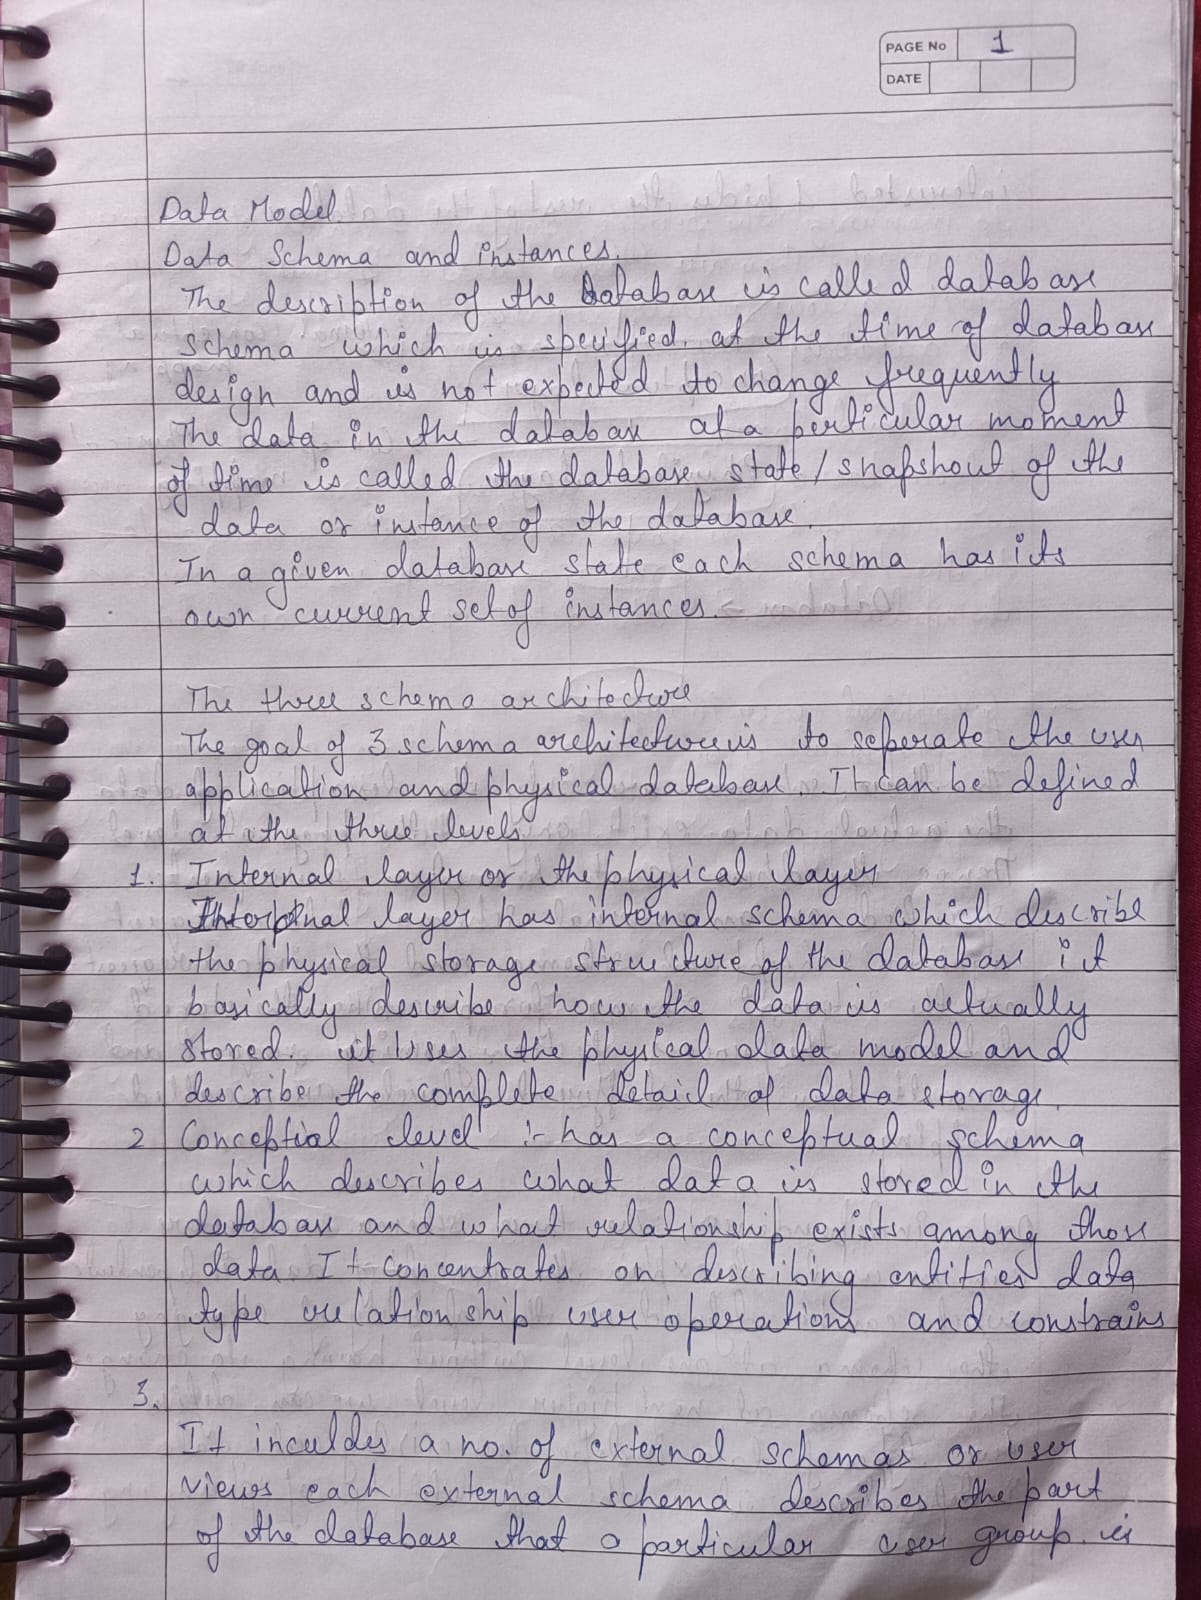 PAGE No 1
DATE
Data Model.
Data Schema and instances.
The description of the database is called database
schema which is specified. at the time of database
design and is not expected to change frequently
The data in the database at a perticular moment
of time is called the database state / snapshout of the
data or instance of the database.
In a given database state each schema has its
own current set of instances.
The three schema architecture
The goal of 3 schema architecture is to seperate the user
application and physical database. It can be defined
at the three levels
1. Internal layer or the physical layer
layer has internal schema which describe
the physical storage structure of the database it
basically describe how the data is actually
stored. it uses the physical data model and
describe the complete detail of data storage.
2 Conceptial level :- has a conceptual schema
which describes what data is stored in the
database and what relationship exists among those
data. It concentrates on describing entities data
type relationship user operations and constrains
3.
It inculdes a no. of external schemas or user
views each external schema describes the part
of the database that a particular user group is